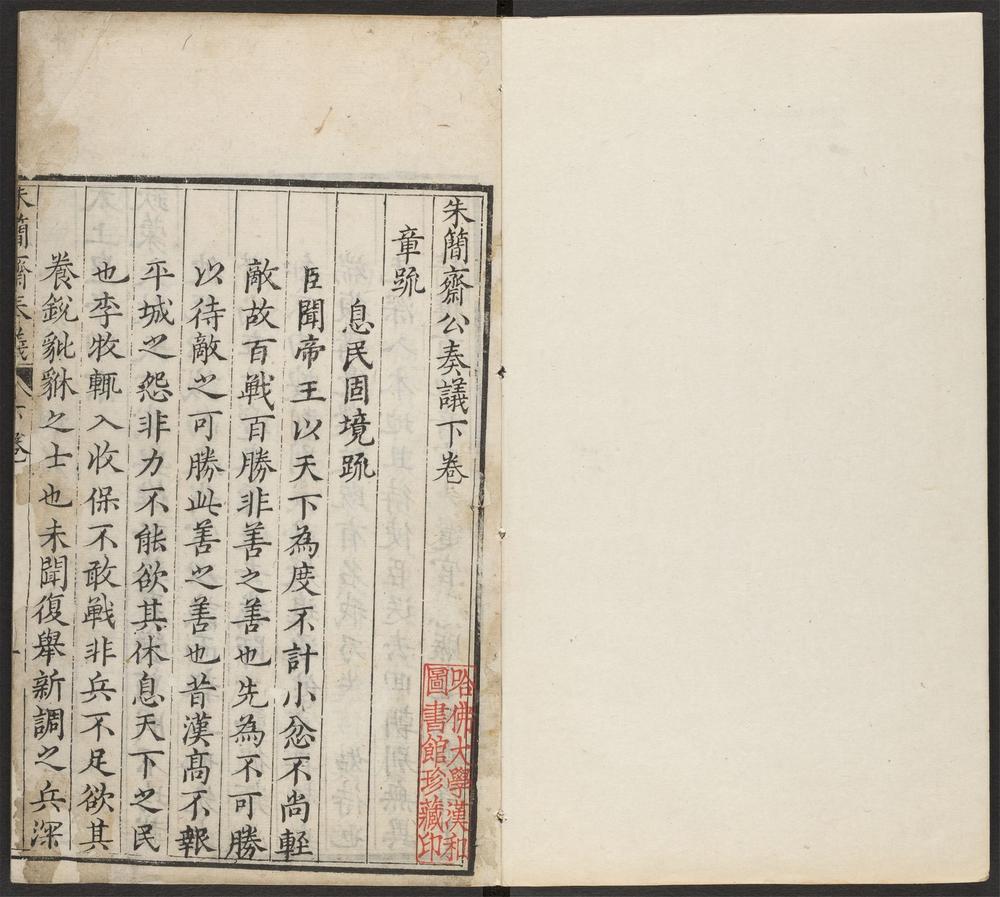 朱簡齋公奏議下卷
章䟽
息民固境䟽
臣聞帝王以天下為度不計小忿不尚輊
敵故百戰百勝非善之善也先為不可勝
以待敵之可勝此善之善也昔漢髙不報
平城之怨非力不能欲其休息天下之民
也李牧輙入收保不敢戰非兵不足欲其
養銳貔貅之士也未聞復舉新調之兵深
朱簡齋奏議 下卷
哈佛大學漢和
圖書館珍藏印